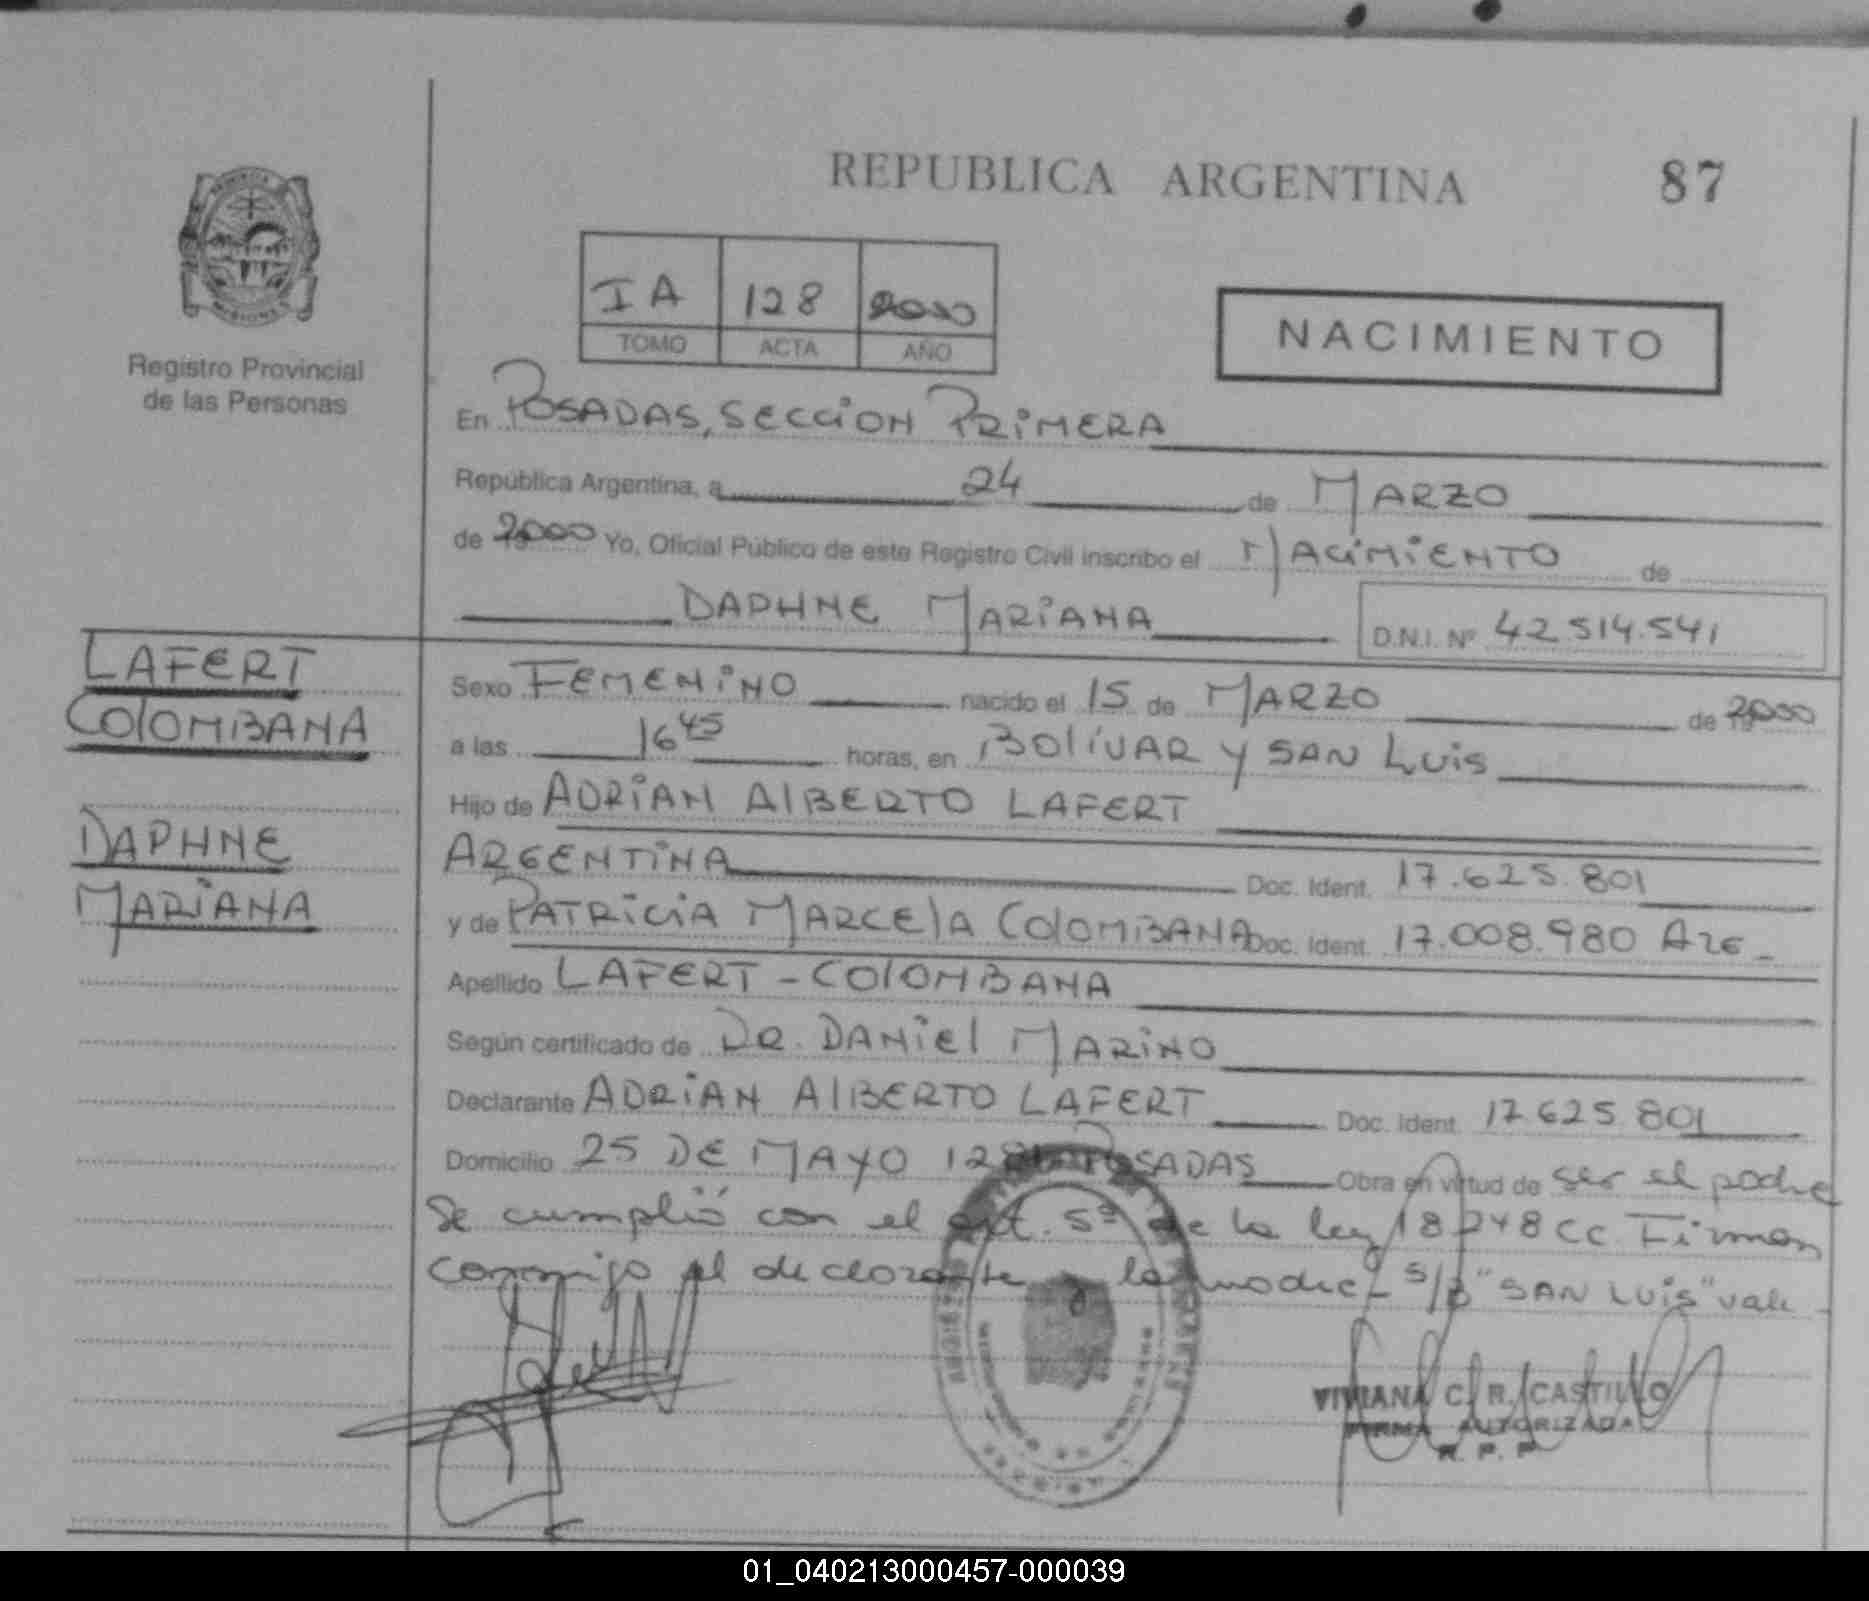 REPUBLICA ARGENTINA 87
I A 128 2000
TOMO ACTA AÑO
NACIMIENTO
Registro Provincial
de las Personas
En POSADAS, SECCION PRIMERA
República Argentina, a 24 de MARZO
de 2000 Yo, Oficial Público de este Registro Civil inscribo el NACIMIENTO de
DAPHNE MARIANA D.N.I. Nº 42 514.541
LAFERT
COLOMBANA
DAPHNE
MARIANA
Sexo FEMENINO nacido el 15 de MARZO de 2000
a las 16 45 horas, en BOLIVAR Y SAN LUIS
Hijo de ADRIAN ALBERTO LAFERT
ARGENTINA Doc. Ident. 17.625.801
y de PATRICIA MARCELA COLOMBANA Doc. Ident. 17.008.980 ARG
Apellido LAFERT - COLOMBANA
Según certificado de DR. DANIEL MARINO
Declarante ADRIAN ALBERTO LAFERT Doc. Ident. 17.625.801
Domicilio 25 DE MAYO POSADAS Obra en virtud de ser el padre
Se cumplió con el art. 5º de la ley 18248 CC Firman
conmigo el declarante y la madre - S/B "SAN LUIS" vale -
VIVIANA C. R. CASTILLO
FIRMA AUTORIZADA
R. P. P
01_040213000457-000039